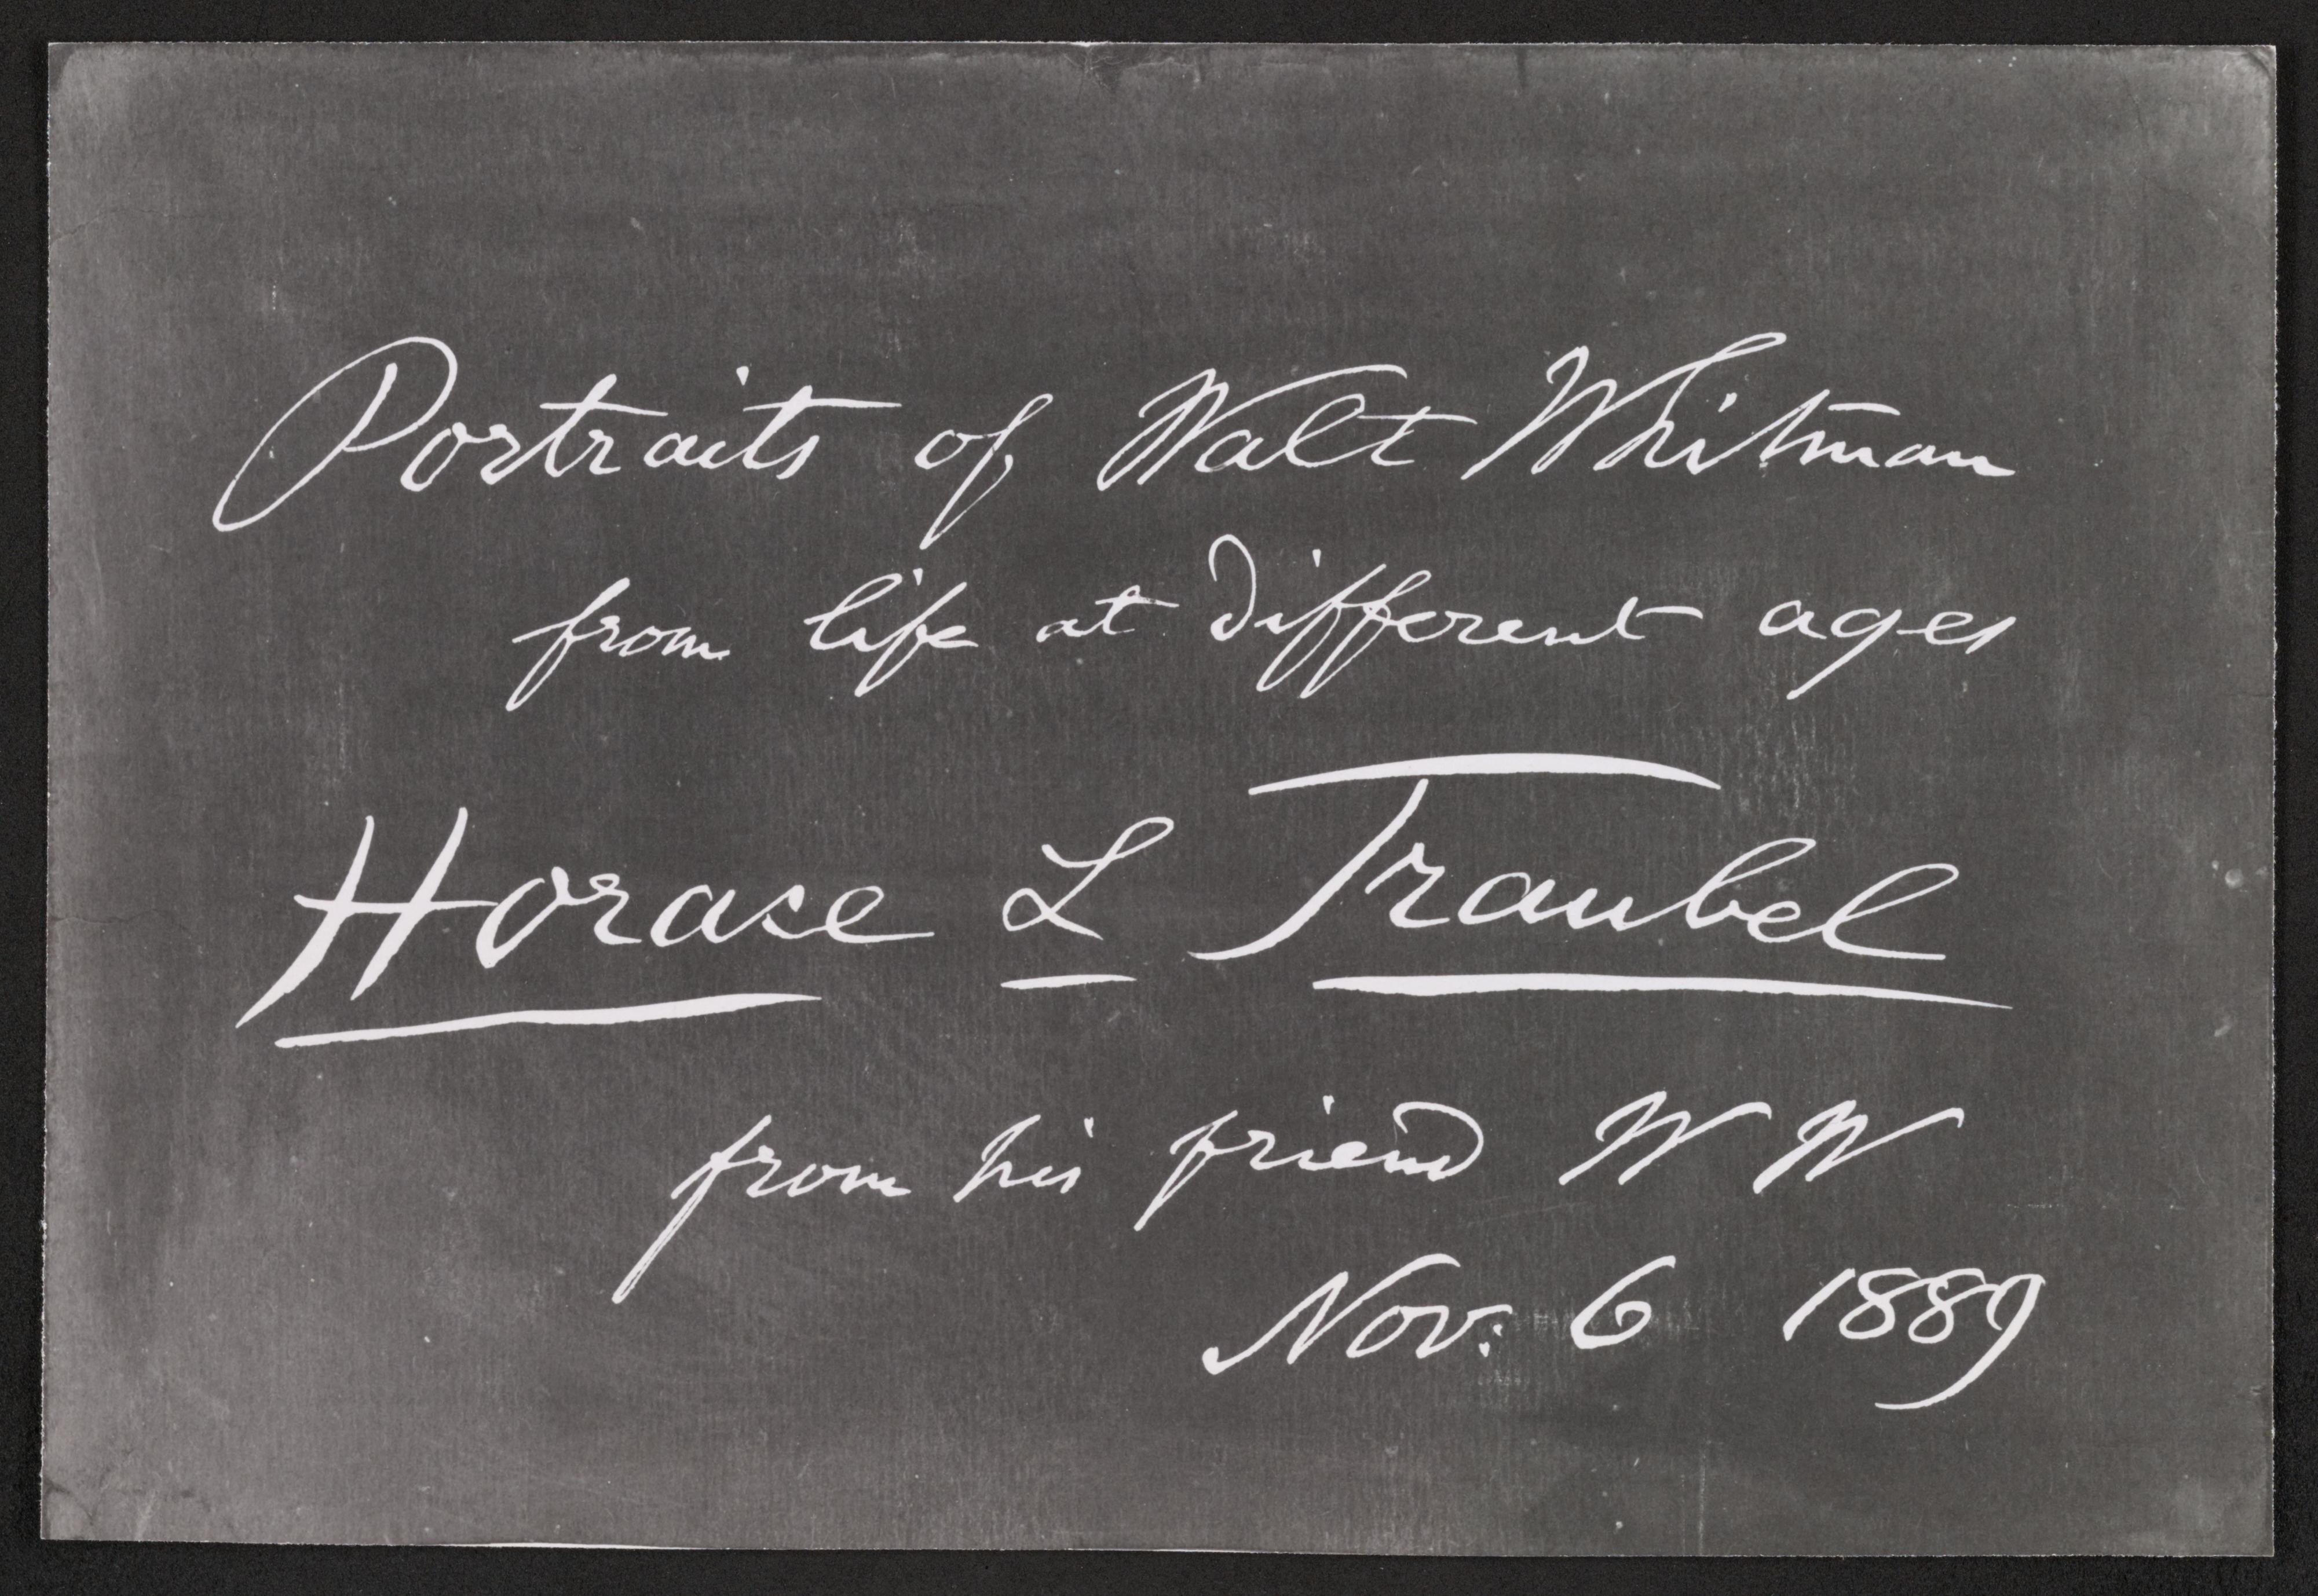 Portraits of Walt Whitman
from life at different ages
Horace L Traubel
from his friend W W
Nov: 6 1889